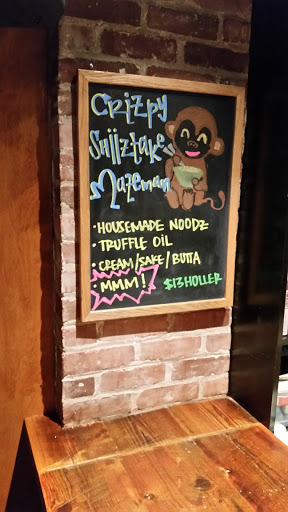 Crizpy
Shiiztake
Mazeman
• HOUSEMADE NOODZ
• TRUFFLE OIL
• CREAM/SAKE/BUTTA
• MMM! $13 HOLLER